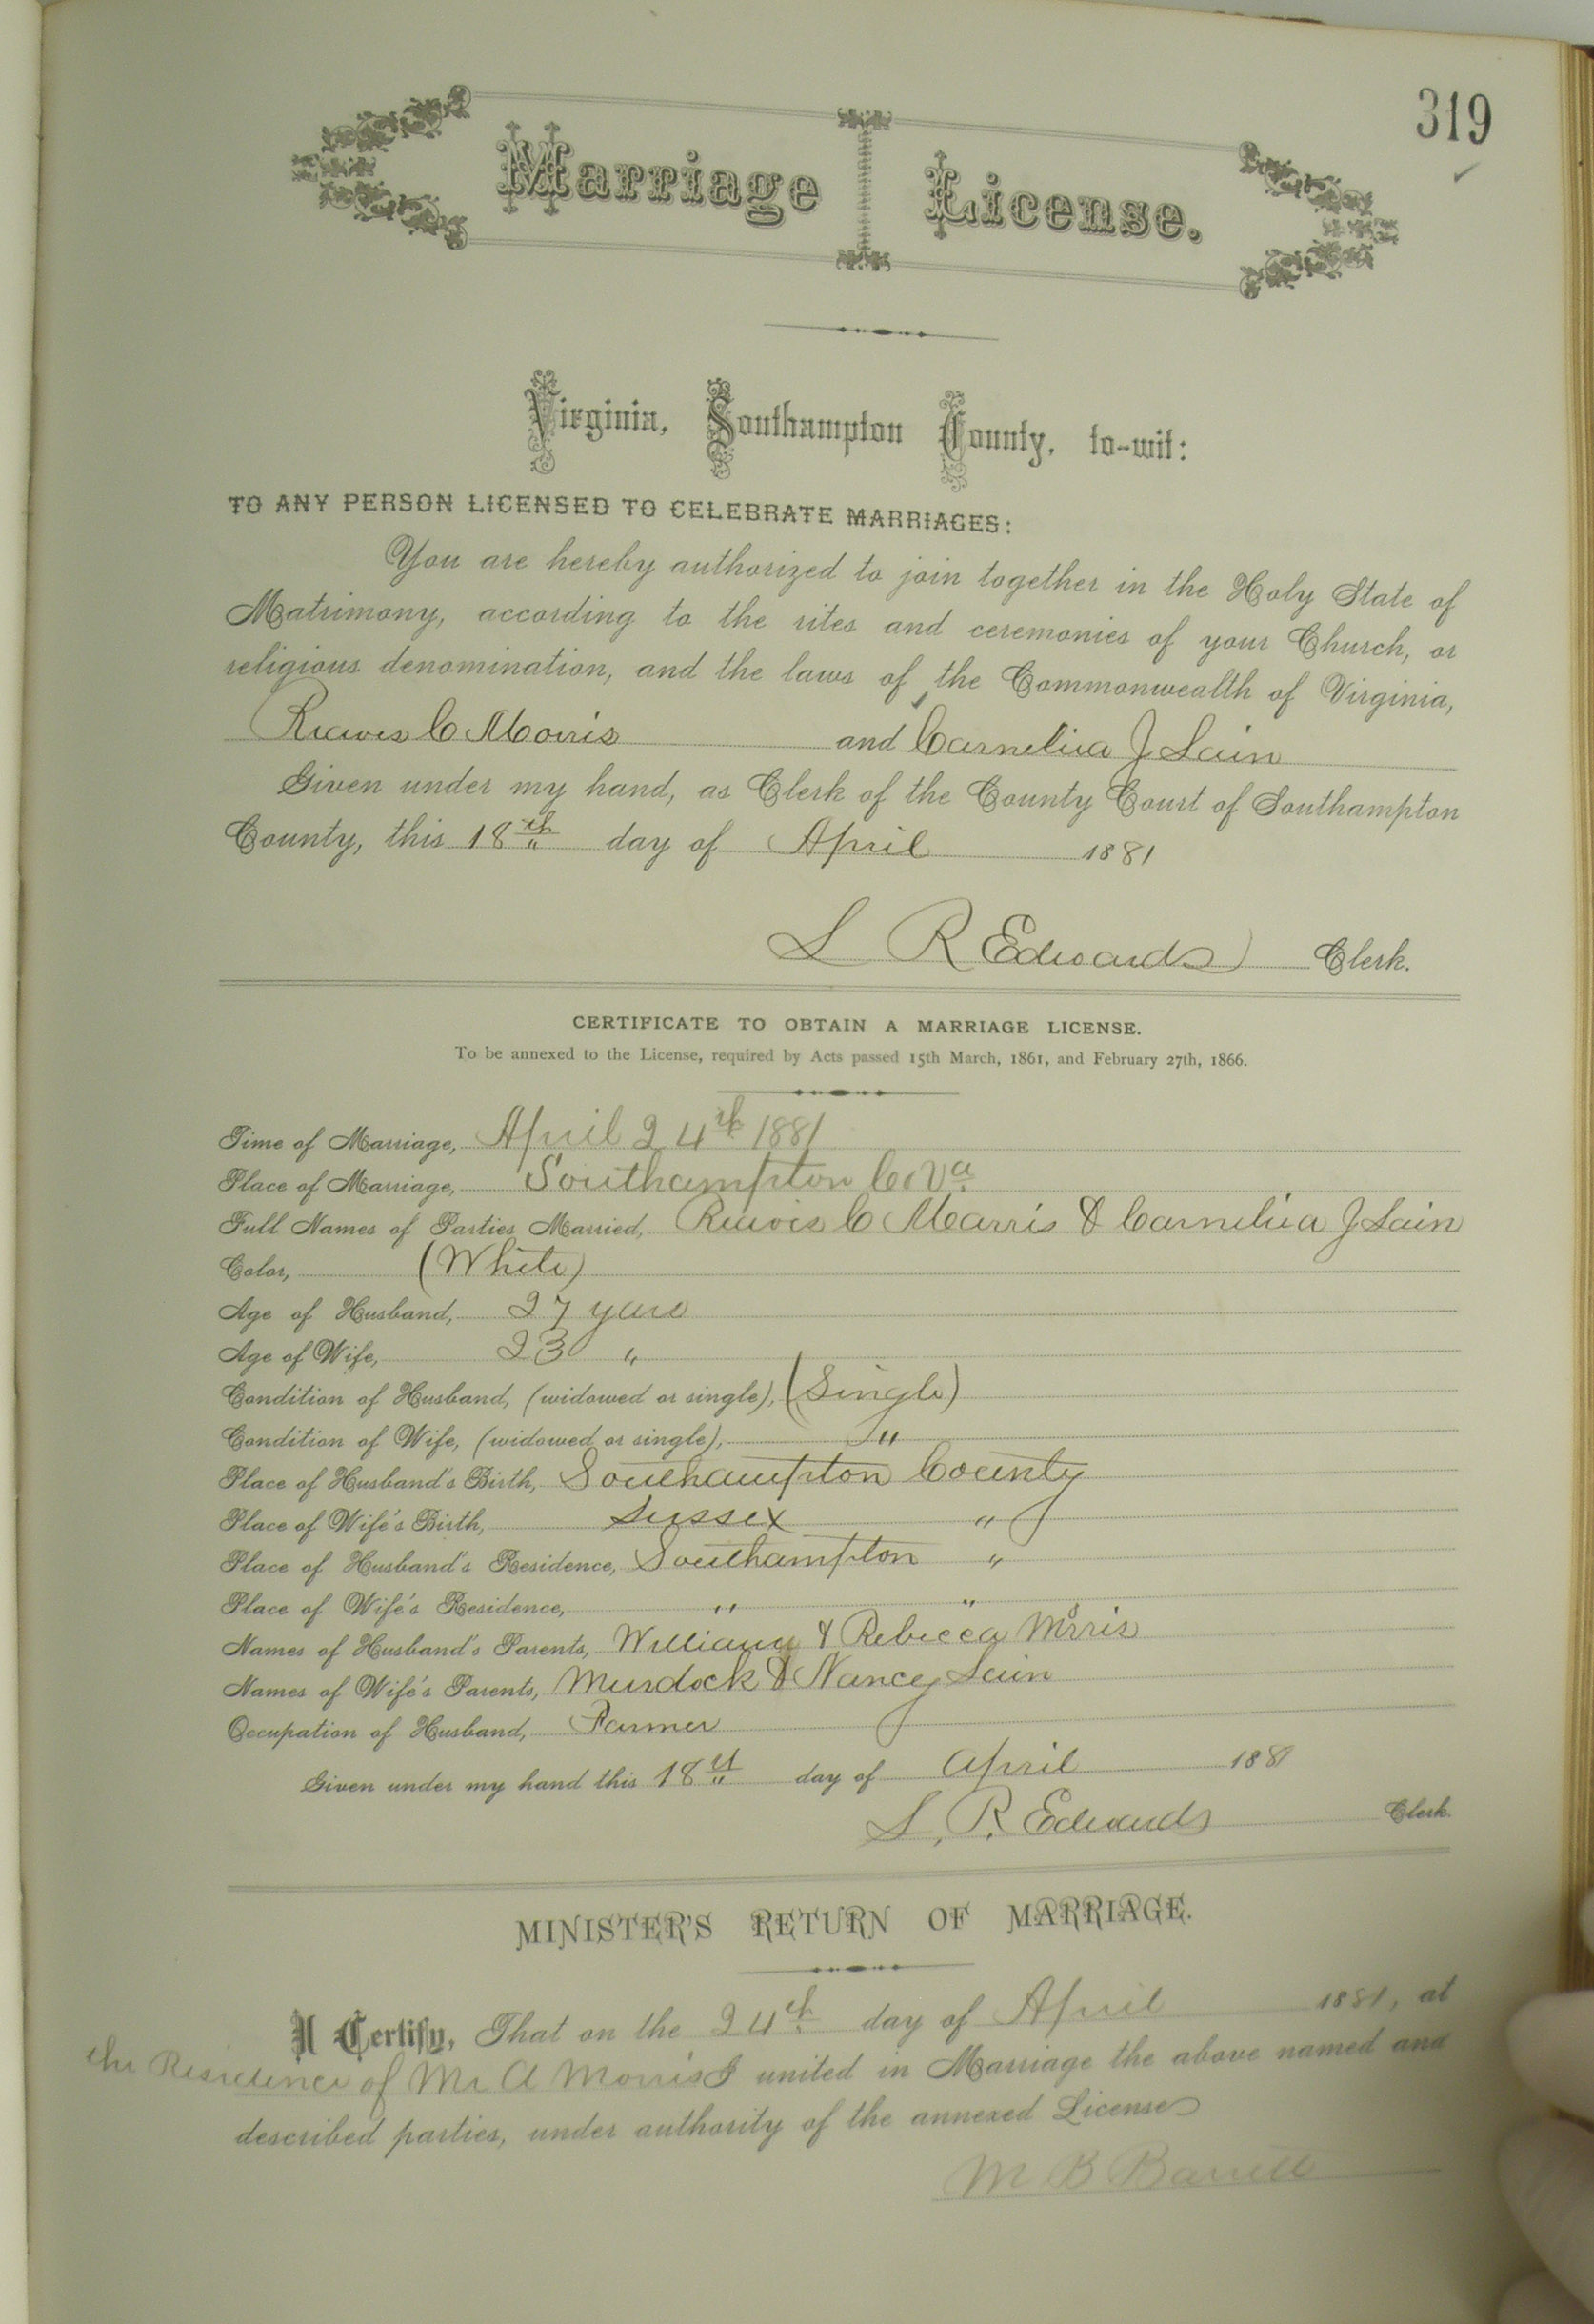 319
Marriage License.
Virginia, Southampton County, to-wit:
TO ANY PERSON LICENSED TO CELEBRATE MARRIAGES:
You are hereby authorized to join together in the Holy State of
Matrimony, according to the rites and ceremonies of your Church, or
religious denomination, and the laws of the Commonwealth of Virginia,
C Morris and J Lain
Given under my hand, as Clerk of the County Court of Southampton
County, this 18th day of April 1881
L R Edwards Clerk.
CERTIFICATE TO OBTAIN A MARRIAGE LICENSE.
To be annexed to the License, required by Acts passed 15th March, 1861, and February 27th, 1866.
Time of Marriage, April 24th 1881
Place of Marriage, Southampton Co Va.
Full Names of Parties Married, C Morris & J Lain
Color, (White)
Age of Husband, 27 years
Age of Wife, 23 "
Condition of Husband, (widowed or single), (Single)
Condition of Wife, (widowed or single), "
Place of Husband's Birth, Southampton County
Place of Wife's Birth, Sussex "
Place of Husband's Residence, Southampton "
Place of Wife's Residence, " "
Names of Husband's Parents, William & Rebecca Morris
Names of Wife's Parents, Murdock & Nancy Lain
Occupation of Husband, Farmer
Given under my hand this 18th day of April 1881
L. R. Edwards Clerk.
MINISTER'S RETURN OF MARRIAGE.
I Certify, That on the 24th day of April 1881, at
the Residence of Mr A Morris I united in Marriage the above named and
described parties, under authority of the annexed License
M B Barrett